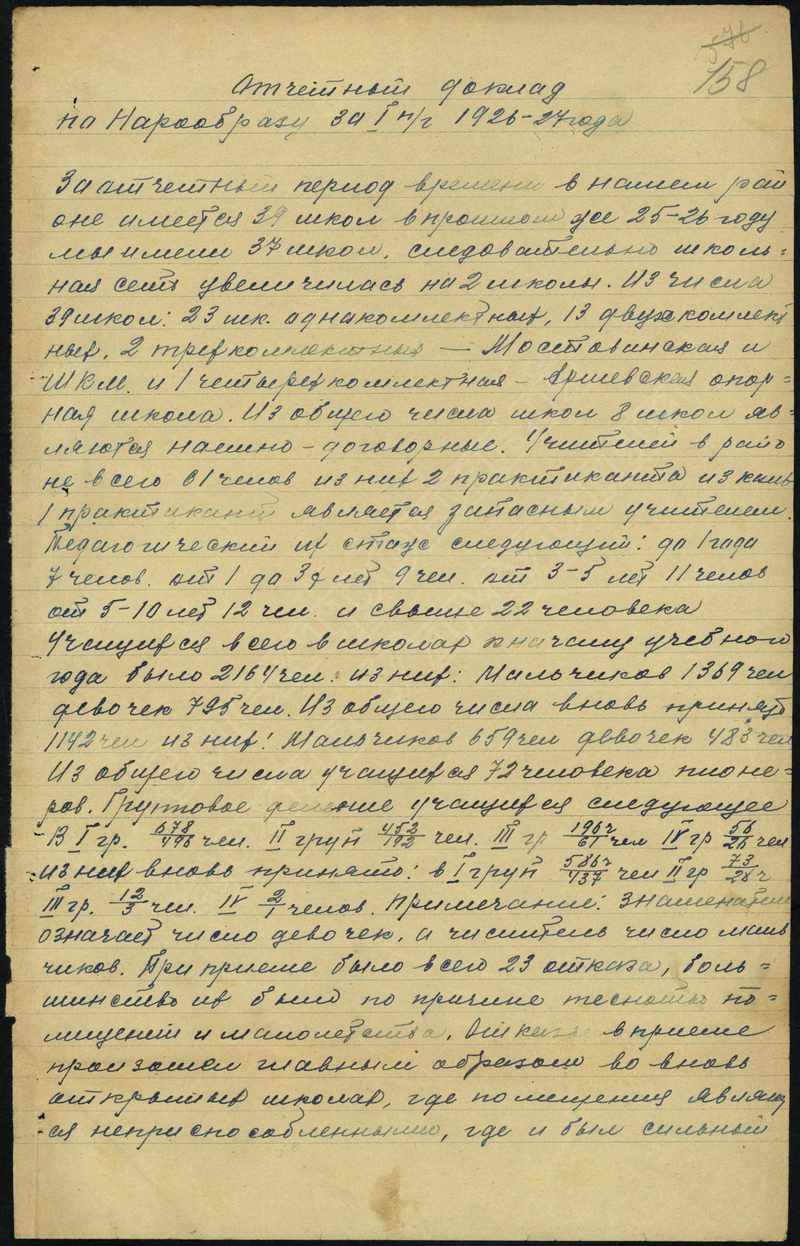 158
Отчетный доклад
по Нарообразу за I п/г 1926-27 года
За отчетный период времени в нашем рай
оне имеется 39 школ в прошлом же 25-26 году
мы имели 37 школ, следовательно школь=
ная сеть увеличилась на 2 школы. Из числа
39 школ: 23 шк. однакомплектных, 13 двухкомлект
ных, 2 трехкомплектных — Мостовинская и
ШКМ. и 1 четырехкомплектная - Ершевская опор=
ная школа. Из общего числа школ 8 школ яв=
ляются наемно-договорные. Учителей в райо
не всего 61 челов из них 2 практиканта из коих
1 практикант является запасным учителем.
Педагогический их стаж следующий: до 1 года
7 челов. от 1 до 3х лет 9 чел. от 3-5 лет 11 челов
от 5-10 лет 12 чел. и свыше 22 человека
Учащихся всего в школах к началу учебного
года было 2164 чел. из них: Мальчиков 1369 чел
девочек 795 чел. Из общего числа вновь принято
1142 чел из них: Мальчиков 659 чел девочек 483 чел
Из общего числа учащихся 72 человека пионе=
ров. Групповое деление учащихся следующее
В I гр. 678/496 чел. II груп 452/192 чел. III гр 196/61 чел IV гр 56/26 чел
из них вновь принято: в I груп 586/437 чел II гр 73/28 ч
III гр. 12/3 чел. IV 2/1 челов. Примечание: Знаменатель
означает число девочек, а числитель число маль
чиков. При приеме было всего 23 отказа, боль=
шинство их было по причине тесноты по=
мещений и малолетства. Отказы в приеме
произошел главным образом во вновь
открытых школах, где помещения являют
ся неприспособленными, где и был сильный